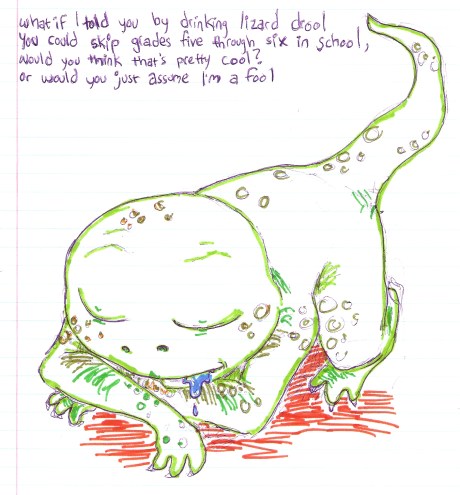 what if I told you by drinking lizard drool
You could skip grades five through six in school,
would you think that's pretty cool?
or would you just assume I'm a fool